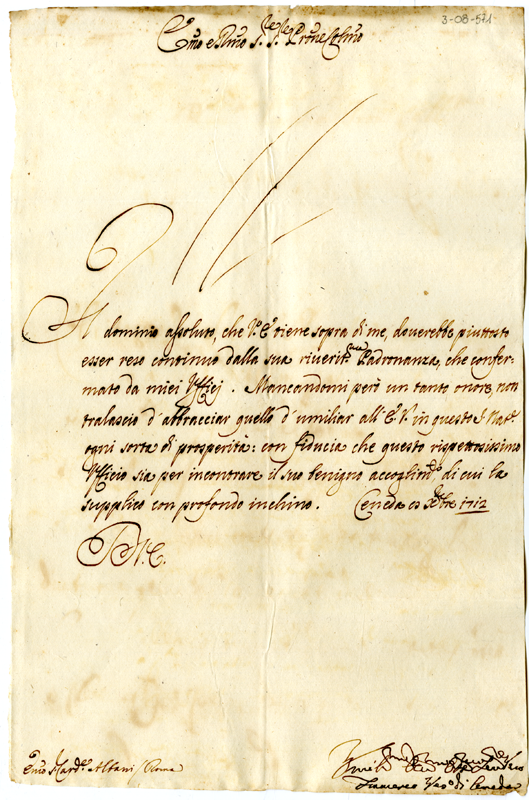 3-08-571
Emo e Rmo S.re S.re P.rone Colmo
Il dominio assoluto, che V.E. tiene sopra di me, doverebbe piuttosto
esser reso continuo dalla sua riverit.ma Padronanza, che confer:
mato da miei Ufficj. Mancandomi però un tanto onore, non
tralascio d'abbracciar quello d'umiliar all'E.V. in questo S. Nat.e
ogni sorta di prosperità: con fiducia che questo rispettosissimo
Ufficio sia per incontrare il suo benigno accoglim.to di cui la
supplico con profondo inchino. Ceneda 10 Xbre 1712
D.V.E.
Emo S.Card.le Albani / Roma
Francesco Vesc.o di Ceneda